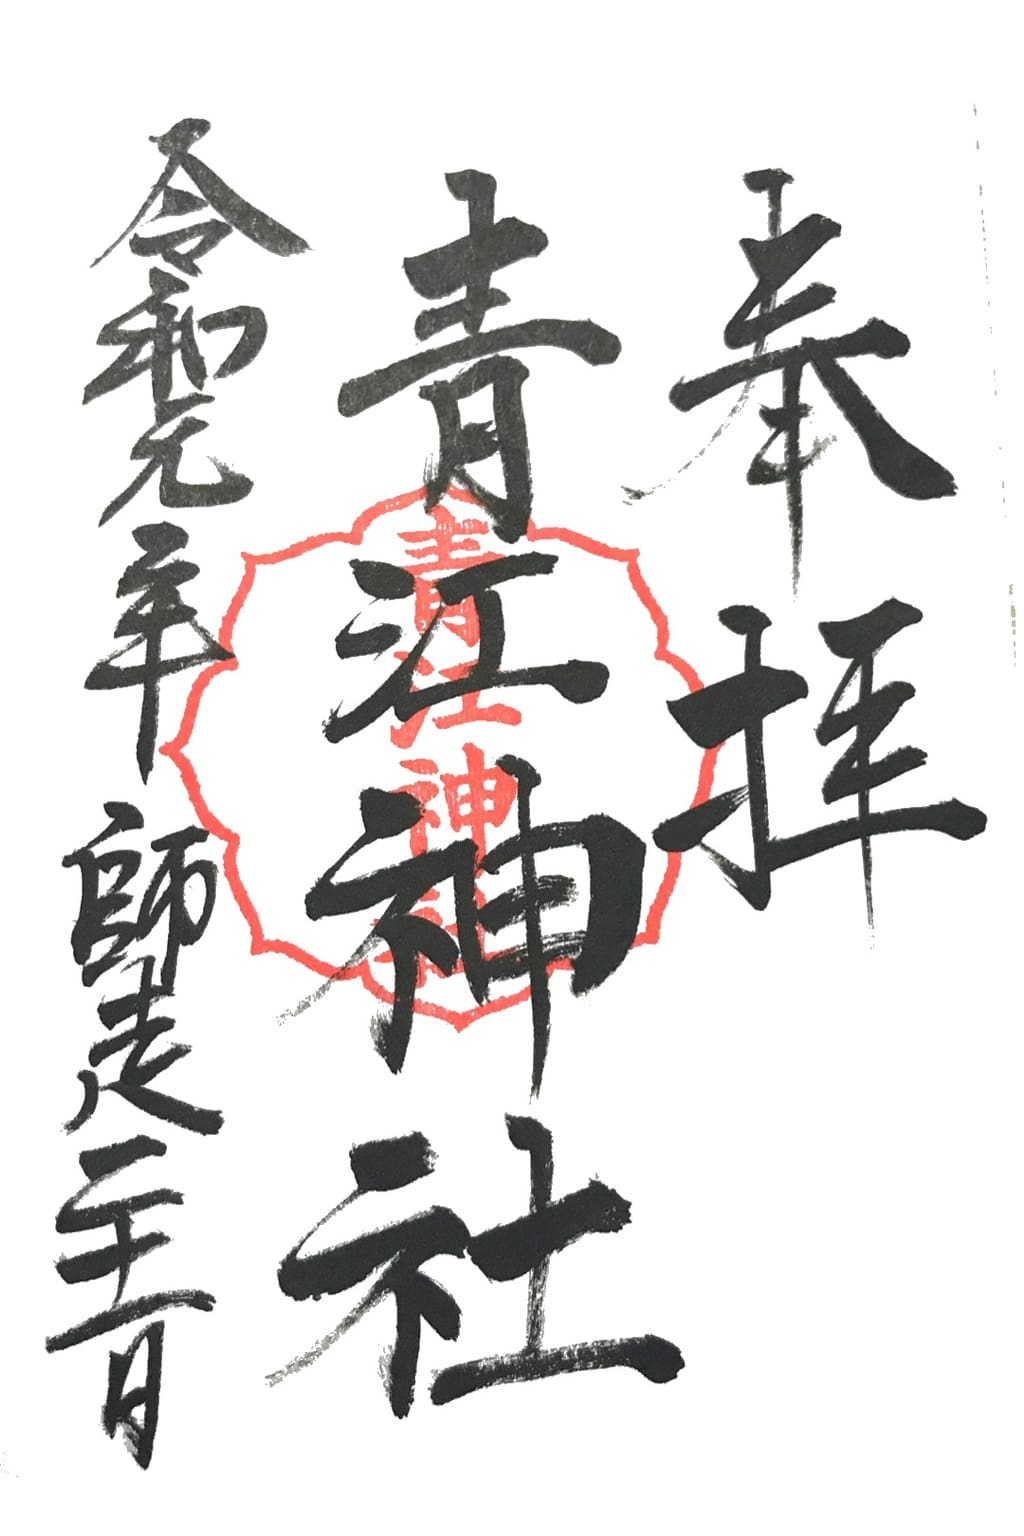 奉拝
青江神社
令和元年師走二十一日
青江神社